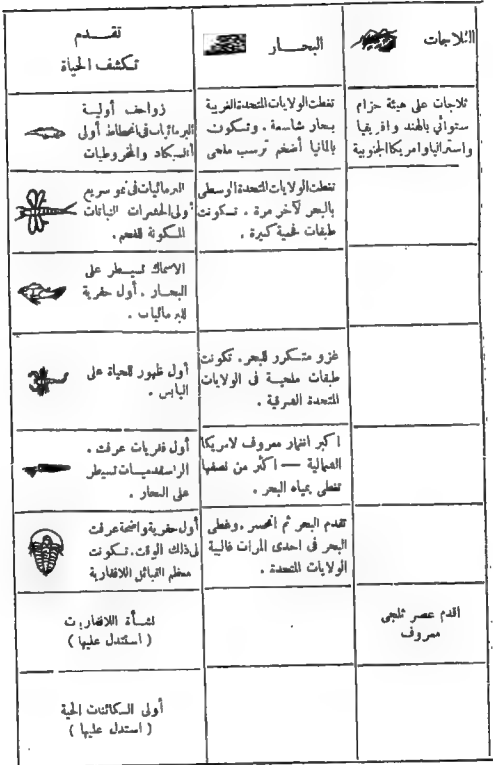 الثلاجات
البحـــار
تقـــدم
تكشف الحياة
ثلاجات على هيئة حزام
ستوائي بالهند وافريقيا
واستراليا وامريكا الجنوبية
تغطت الولايات المتحدة الغربية
ببحار شاسعة . وتسكونت
بالمانيا أضخم ترسب ملحى
زواحف أولية
البرمائيات فى انحطاط أولى
السيكاد والمخروطيات
تغطت الولايات المتحدة الوسطى
بالبحر لآخر مرة . تسكونت
طبقات فحمية كبيرة .
البرمائيات فى نمو سريع
أولى الحشرات النباتات
المسكونة للفحم .
الاسماك تسيطر على
البحار . أول حفرية
للبرمائيات .
غزو متكرر للبحر. تكونت
طبقات ملحيـة فى الولايات
المتحدة الشرقية .
أول ظهور للحياة على
اليابس .
اكبر انغمار معروف لامريكا
الشمالية — اكثر من نصفها
تغطى بمياه البحر .
أول فقريات عرفت .
الرأسقدميـات تسيطر
على البحار .
تقدم البحر ثم انحسر . وغطى
البحر فى احدى المرات غالبية
الولايات المتحدة .
أول حفرية واضحة عرفت
فى ذلك الوقت . تسكونت
معظم القبائل اللافقارية
اقدم عصر ثلجى
معروف
نشأة اللافقاريات
( استدل عليها )
أولى السكائنات الحية
( استدل عليها )